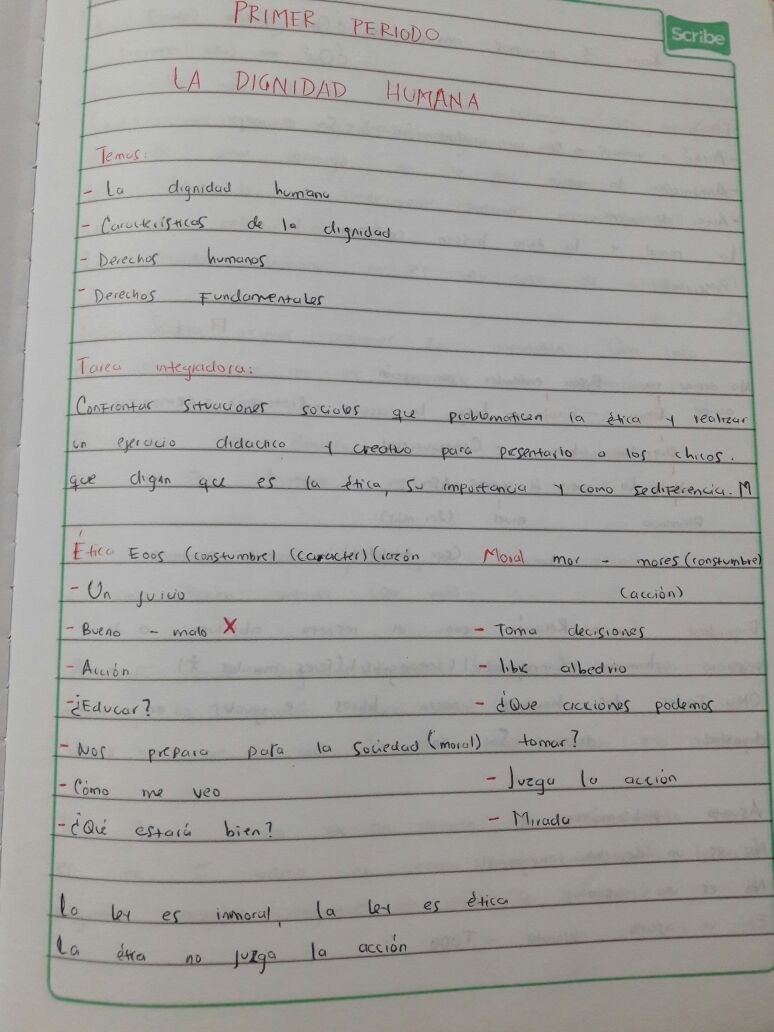 PRIMER PERIODO
Scribe
LA DIGNIDAD HUMANA
Temas:
- La dignidad humana
- Características de la dignidad
- Derechos humanos
- Derechos Fundamentales
Tarea integradora:
Confrontar situaciones sociales que problematican la ética y realizar
un ejercicio didactico y creativo para presentarlo a los chicos.
que digan que es la ética, su importancia y como se diferencia. M
Ética Eoos (constumbre) (caracter) (razón Moral mor - mores (constumbre)
- Un juicio (acción)
- Bueno - malo X - Toma decisiones
- Acción - libre albedrio
- ¿Educar? - ¿Que acciones podemos
- Nos prepara para la sociedad (moral) tomar?
- Cómo me veo - Juzga la acción
- ¿Qué estará bien? - Mirada
La ley es inmoral, la ley es ética
La ética no juzga la acción